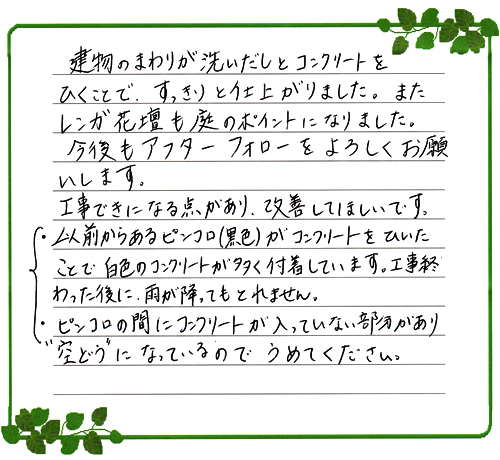 建物のまわりが洗いだしとコンクリートを
ひくことで、すっきりと仕上がりました。また
レンガ花壇も庭のポイントになりました。
今後もアフターフォローをよろしくお願
いします。
工事できになる点があり、改善してほしいです。
・以前からあるピンコロ(黒色)がコンクリートをひいた
ことで白色のコンクリートが多く付着しています。工事終
わった後に、雨が降ってもとれません。
・ピンコロの間にコンクリートが入っていない部分があり
"空どう"になっているのでうめてください。